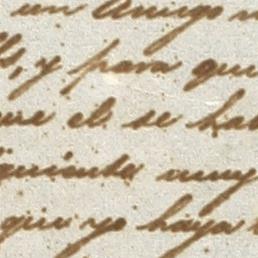 un Amigo
y para que
el se ha
siguiente muy
que yo haya